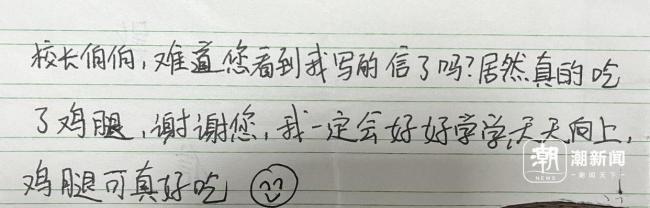 校长伯伯,难道您看到我写的信了吗?居然真的吃
了鸡腿,谢谢您,我一定会好好学学,天天向上,
鸡腿可真好吃
潮 潮新闻
NEWS 潮闻天下